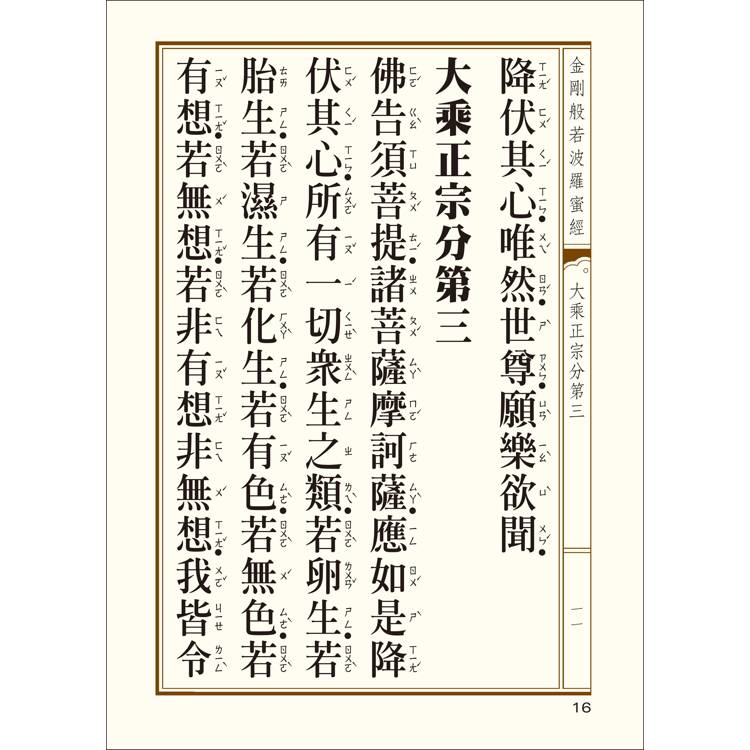 金剛般若波羅蜜經
大乘正宗分第三
一一
降伏其心唯然世尊願樂欲聞
大乘正宗分第三
佛告須菩提諸菩薩摩訶薩應如是降
伏其心所有一切眾生之類若卵生若
胎生若濕生若化生若有色若無色若
有想若無想若非有想非無想我皆令
16